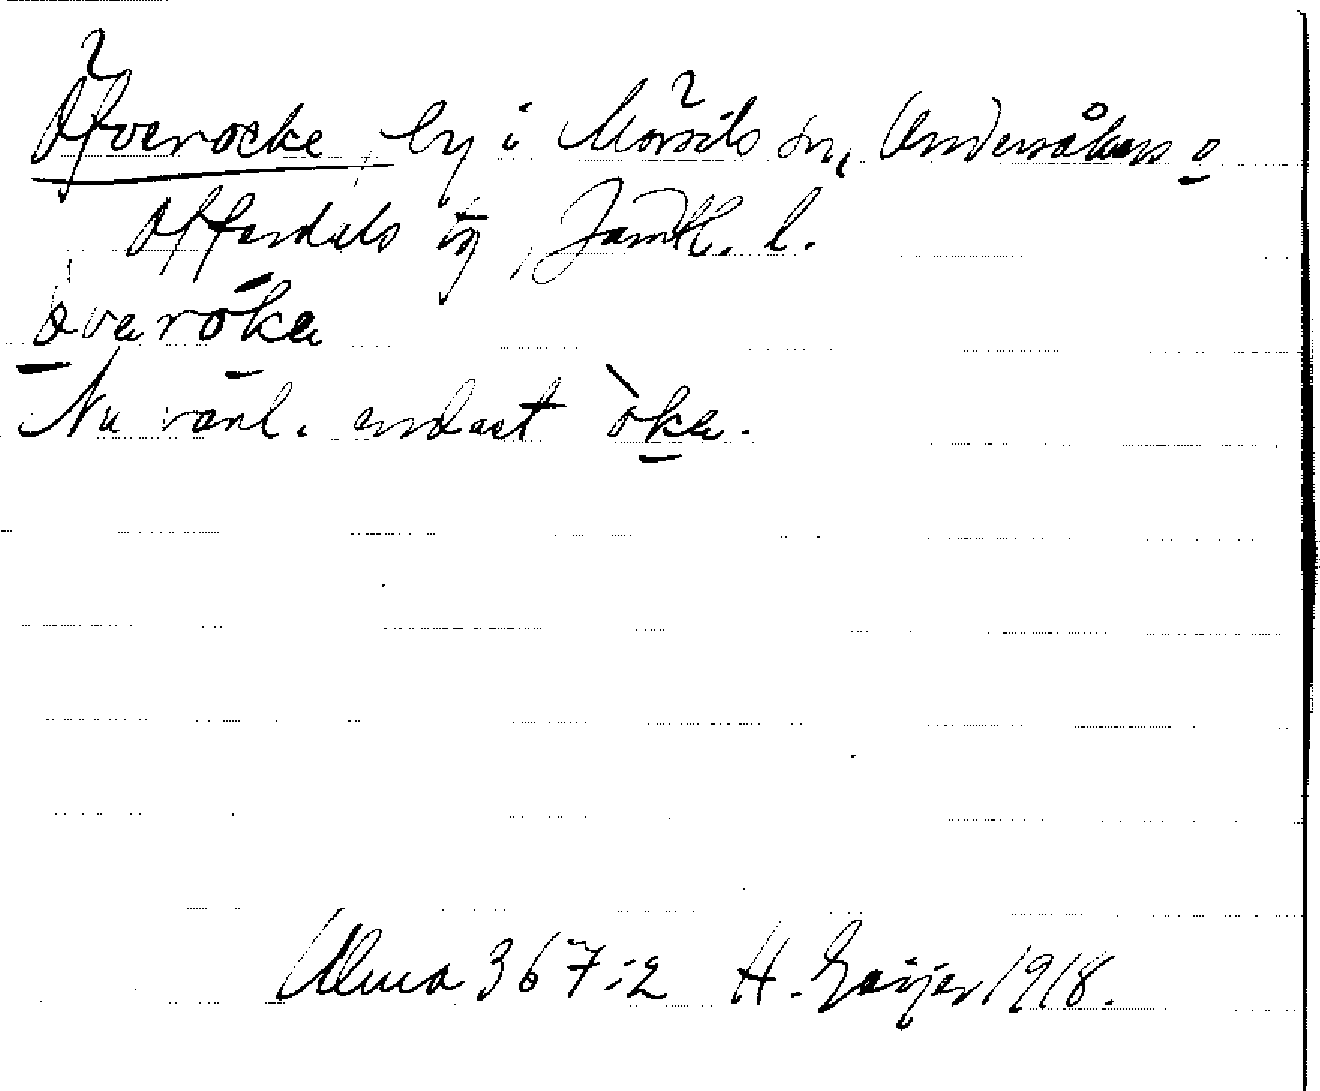 Öfverocke, by i Mörsils sn, Undersåkers o
Offerdals tg, Jämtl. l.
överöka
Nu vanl. endast öka.
Ulma 367:2 H. Geijer 1918.